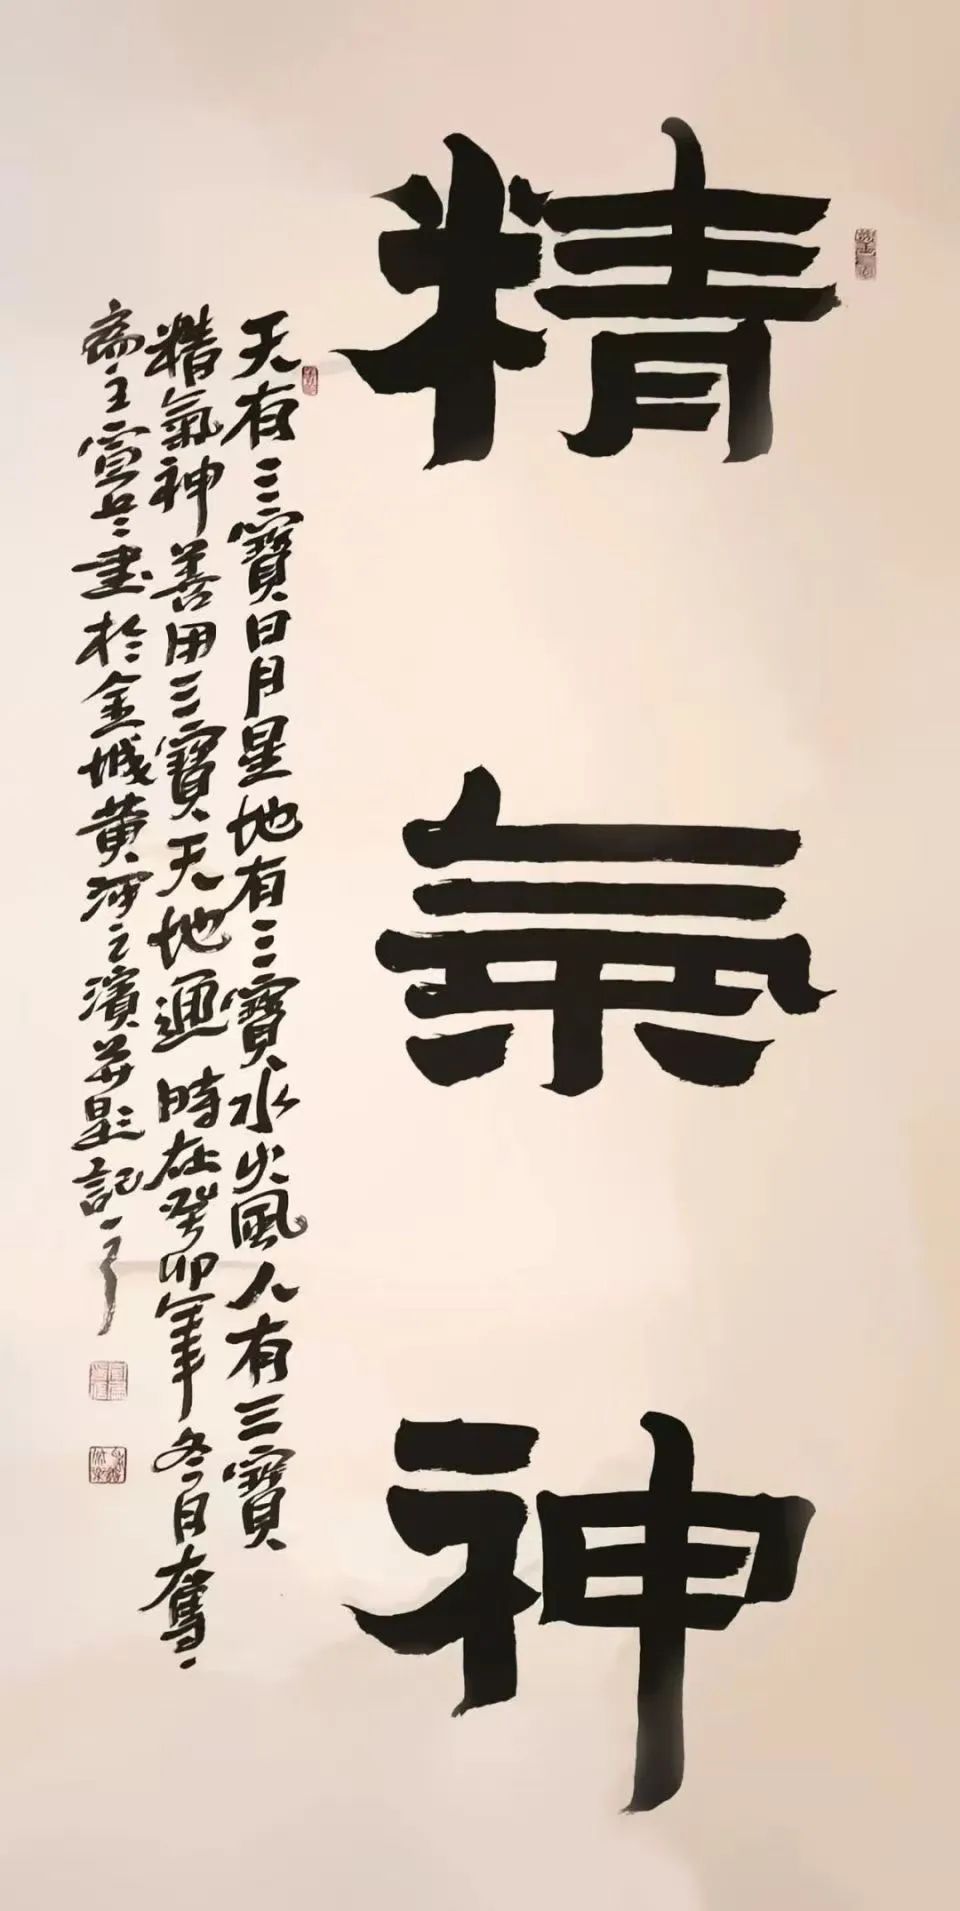 精氣神
天有三寶日月星地有三寶水火風人有三寶
精氣神善用三寶天地通時在癸卯年冬月奮
齋主宣兵書於金城黃河之濱并題記